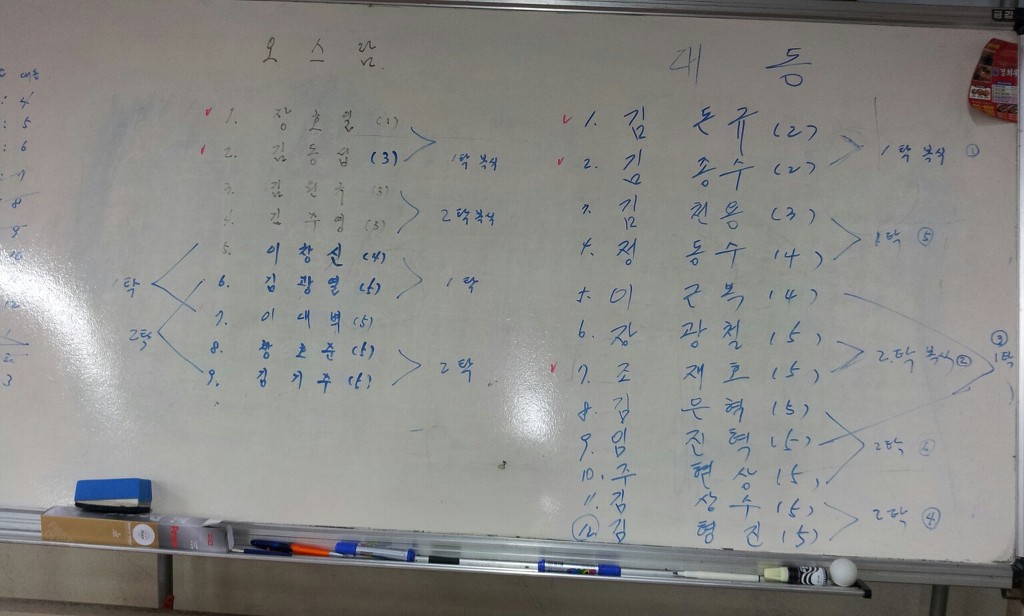 오스람
1. 장호열 (1)
2. 김동섭 (3)
1탁 복식
3. 김현욱 (3)
4. 김주영 (3)
2탁 복식
5. 이창신 (4)
6. 김광열 (5)
1탁
7. 이대벽 (5)
8. 황호준 (5)
9. 김기주 (5)
2탁
1탁
2탁
대동
1. 김돈규 (2)
2. 김종수 (2)
1탁 복식 ①
3. 김천용 (3)
4. 정동수 (4)
1탁 ⑤
5. 이근복 (4)
6. 장광철 (5)
7. 조재호 (5)
2탁 복식 ②
③ 1탁
8. 김문혁 (5)
9. 임진혁 (5)
10. 주현상 (5)
2탁
11. 김상수 (5)
⑫ 김형진 (5)
2탁 ④
대동
: 4
: 5
: 6